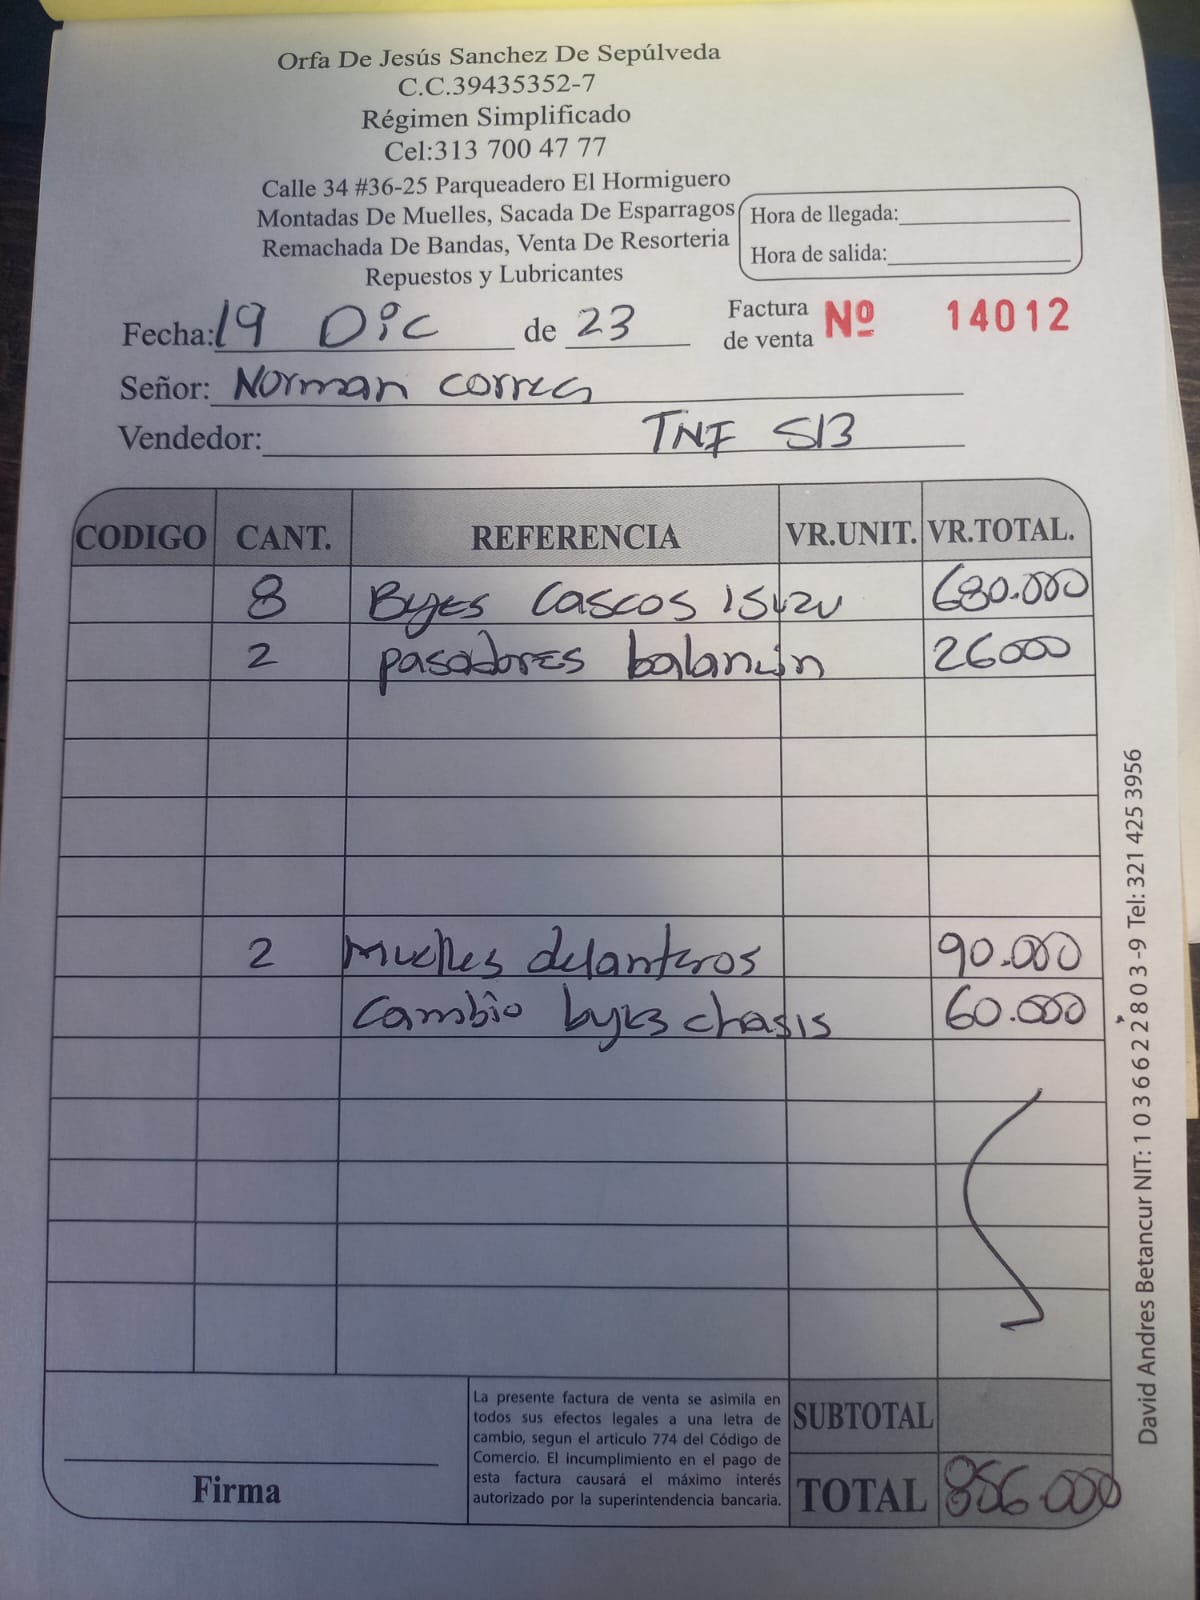 Orfa De Jesús Sanchez De Sepúlveda
C.C.39435352-7
Régimen Simplificado
Cel:313 700 47 77
Calle 34 #36-25 Parqueadero El Hormiguero
Montadas De Muelles, Sacada De Esparragos
Remachada De Bandas, Venta De Resorteria
Repuestos y Lubricantes
Hora de llegada:
Hora de salida:
Fecha: 19 Dic de 23
Factura de venta Nº 14012
Señor: Norman Correa
Vendedor: TNF 513
CODIGO CANT. REFERENCIA VR.UNIT. VR.TOTAL.
8 Byes Cascos ISUZU 680.000
2 pasadores balancin 26000
2 Muelles delanteros 90.000
Cambio byes chasis 60.000
La presente factura de venta se asimila en
todos sus efectos legales a una letra de
cambio, segun el articulo 774 del Código de
Comercio. El incumplimiento en el pago de
esta factura causará el máximo interés
autorizado por la superintendencia bancaria.
Firma
SUBTOTAL
TOTAL 856.000
David Andres Betancur NIT: 1 0 3 6 6 2 2 8 0 3 -9 Tel: 321 425 3956